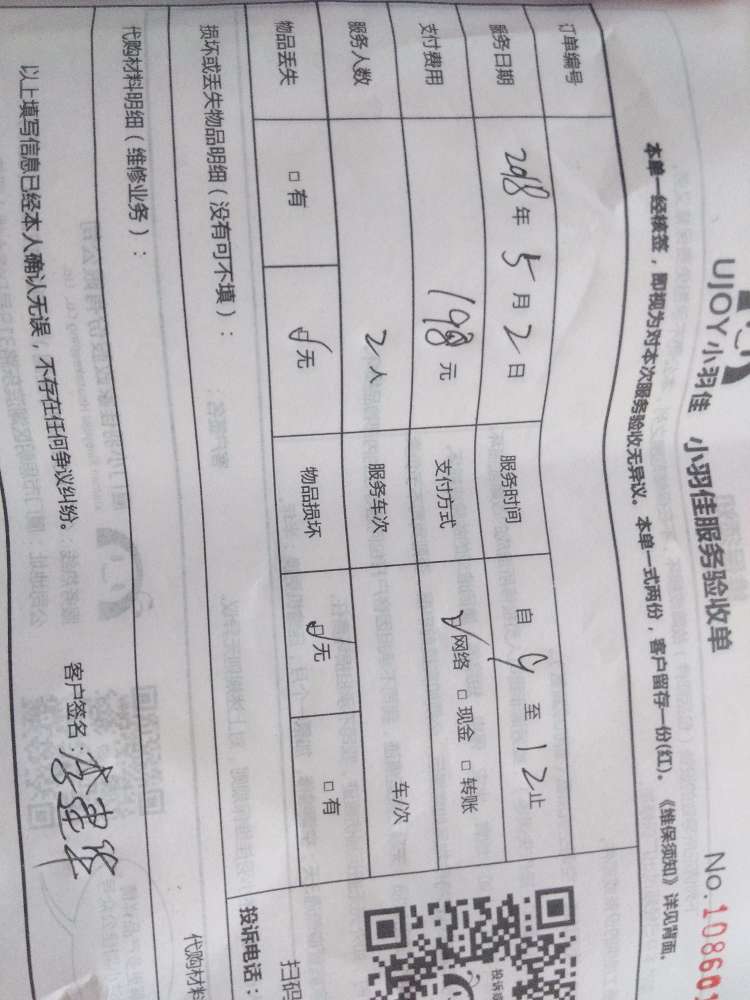 UJOY小羽佳 小羽佳服务验收单
No.108601
本单一经核签，即视为对本次服务验收无异议。本单一式两份，客户留存一份(红)。《维保须知》详见背面。
订单编号
服务日期 2018年5月2日 服务时间 自9至12止
支付费用 198元 支付方式 ☑网络 □现金 □转账
服务人数 2人 服务车次 车/次
物品丢失 □有 ☑无 物品损坏 ☑无 □有
损坏或丢失物品明细（没有可不填）：
代购材料明细（维修业务）：
代购材料
以上填写信息已经本人确认无误，不存在任何争议纠纷。
客户签名：李建华
投诉
扫码
投诉电话：